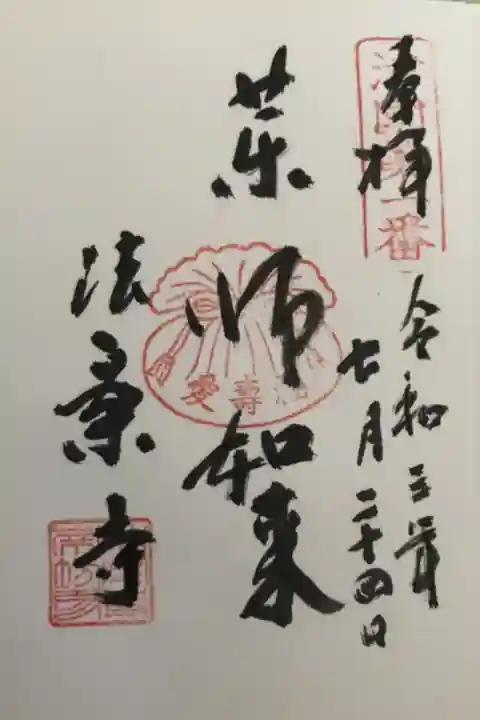 奉拝
一番
令和三年
七月二十四日
薬師如来
壽愛
法案寺